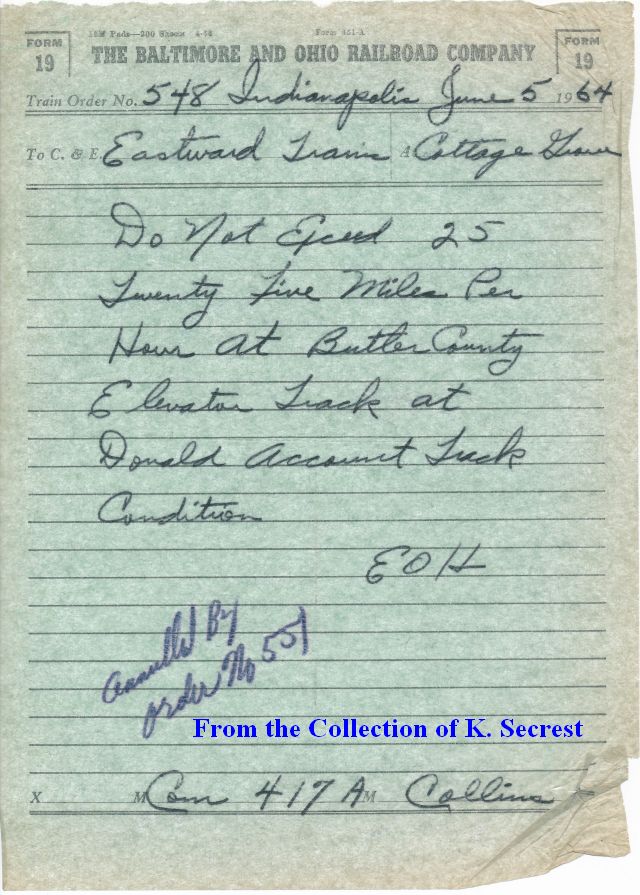 15M Pads—200 Sheets 4-56 Form 451-A
FORM 19 THE BALTIMORE AND OHIO RAILROAD COMPANY FORM 19
Train Order No. 548 Indianapolis June 5 1964
To C. & E. Eastward Trains A Cottage Grove
Do Not Exceed 25
Twenty Five Miles Per
Hour At Butler County
Elevator Track at
Donald Account Track
Condition
EOH
Annulled By
order No 551
From the Collection of K. Secrest
X M Com 417 A M Collins